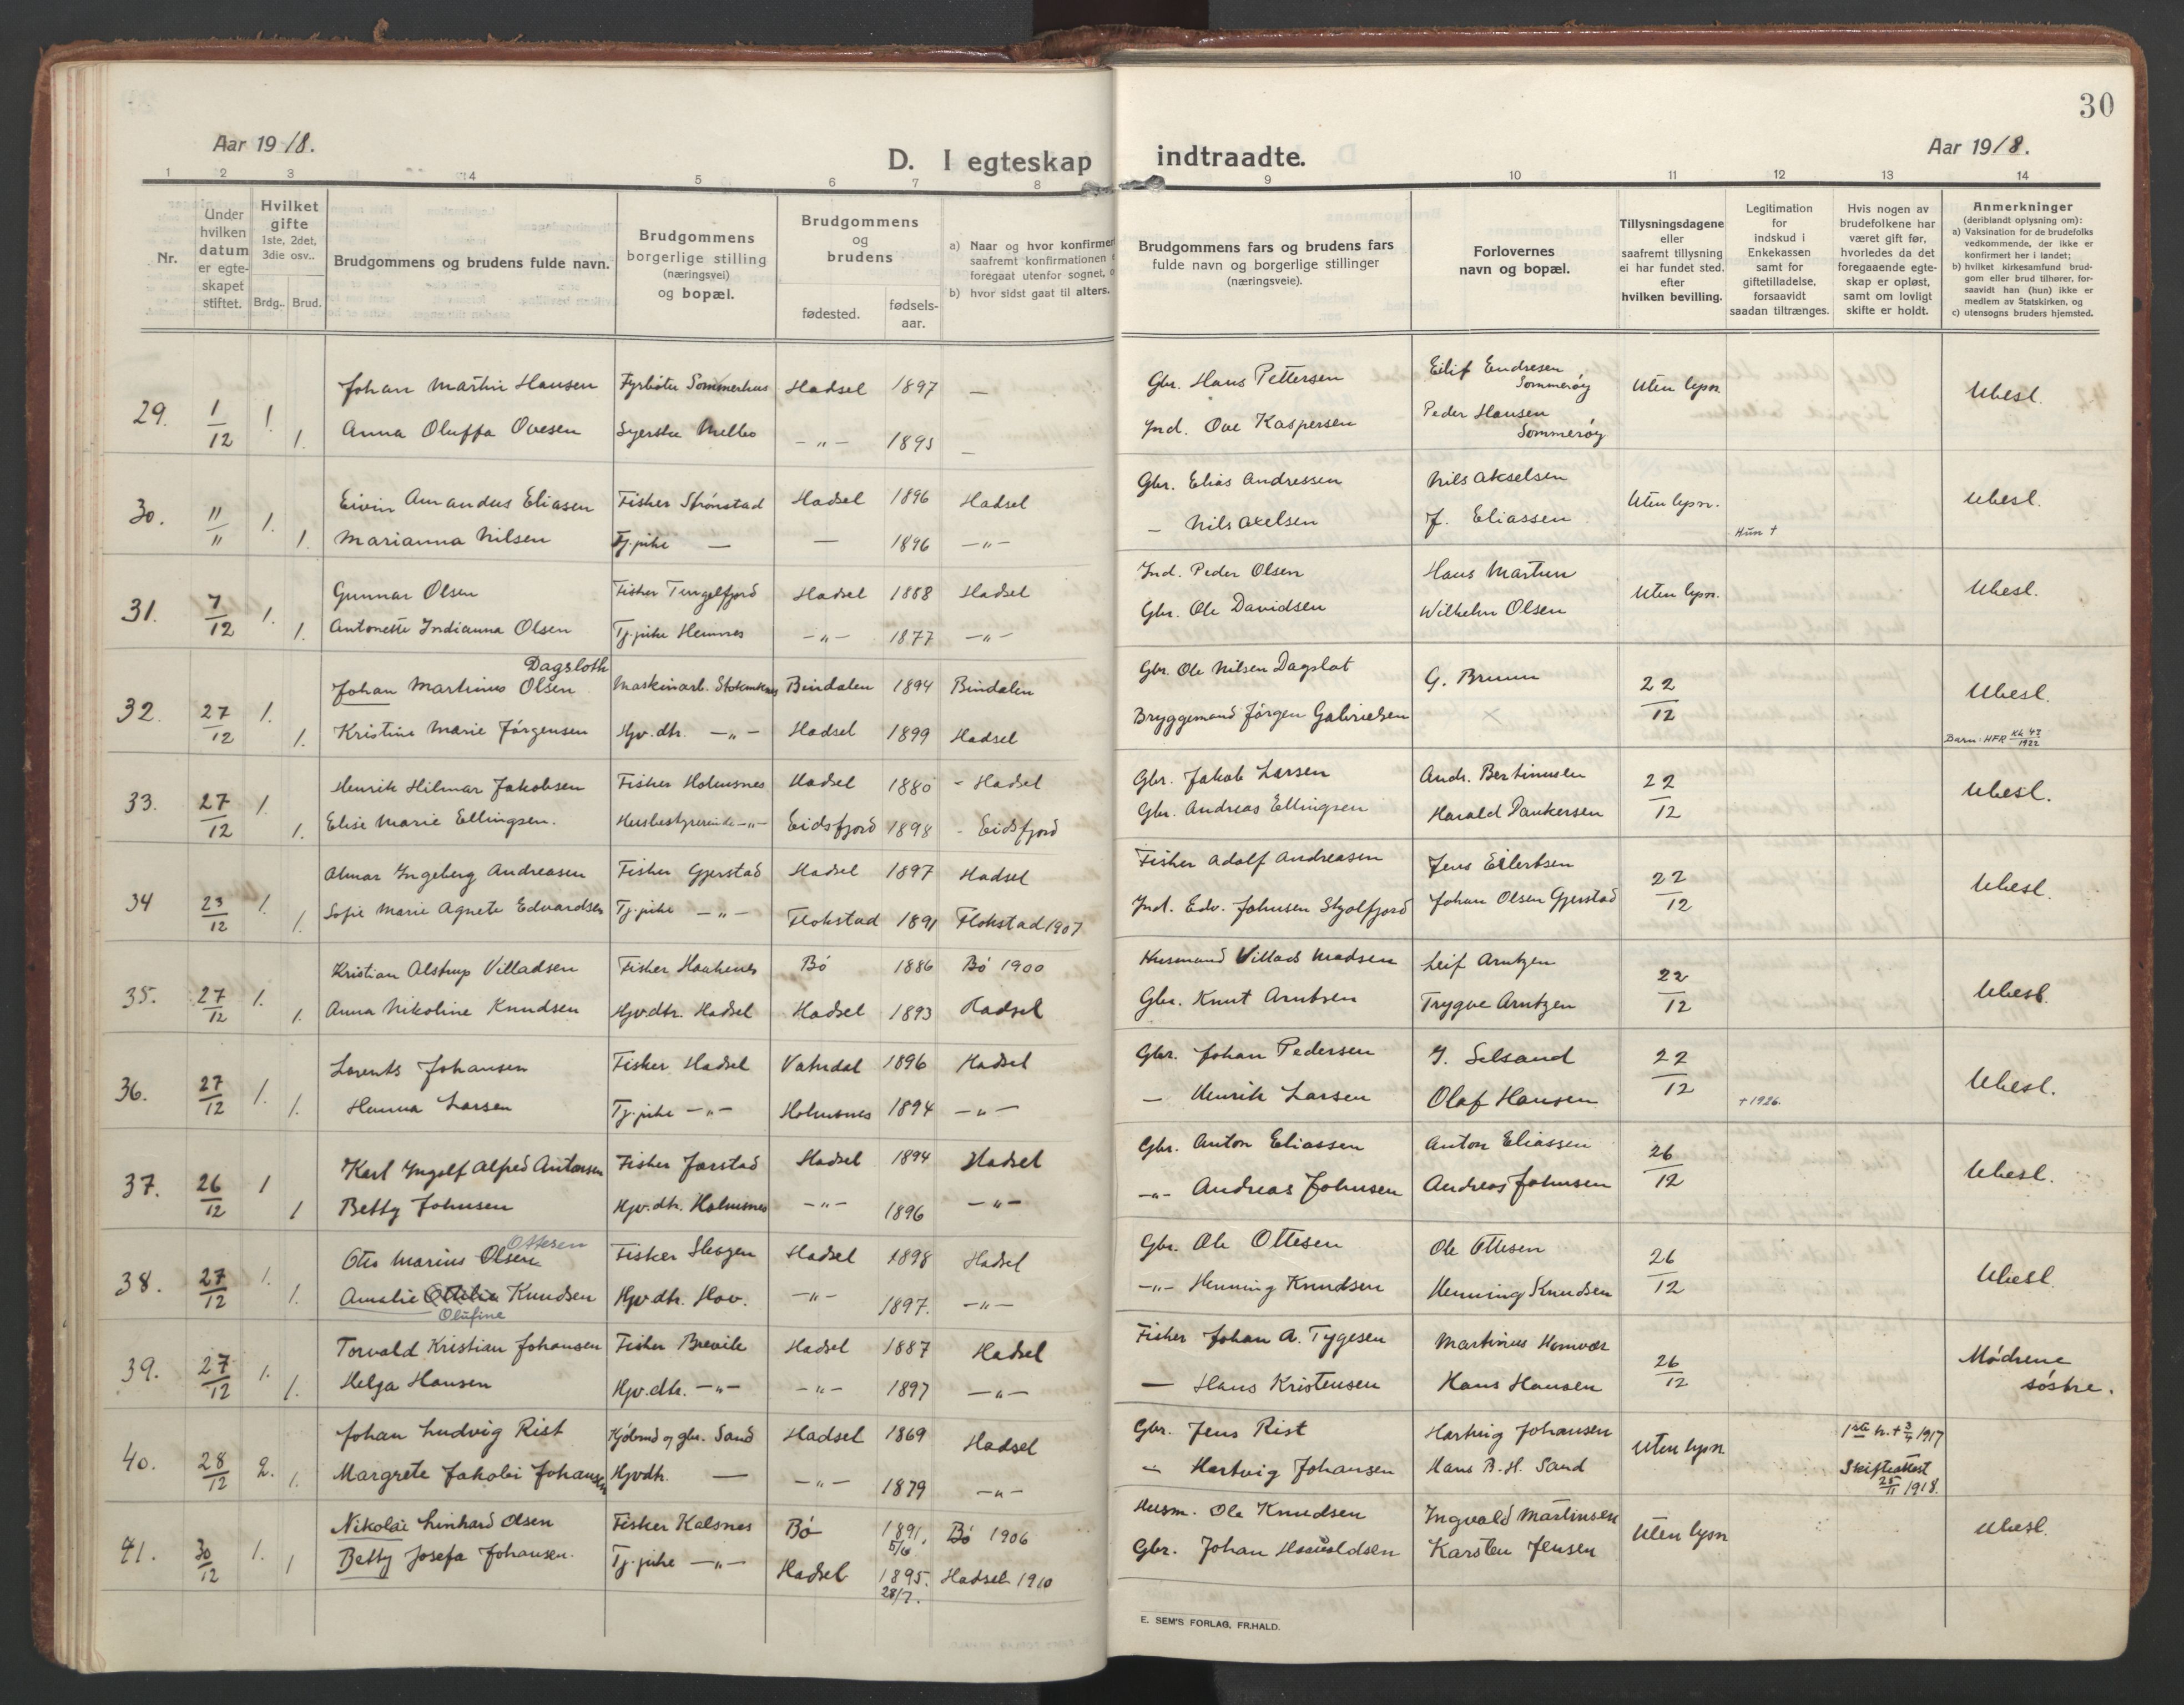 30
Aar 1918.
D. I egteskap indtraadte.
Aar 1918.
1 2 3 4 5 6 7 8 9 10 11 12 13 14
Nr.
Under hvilken datum er egte-skapet stiftet.
Hvilket gifte 1ste, 2det, 3die osv..
Brdg.. Brud.
Brudgommens og brudens fulde navn.
Brudgommens borgerlige stilling (næringsvei) og bopæl.
Brudgommens og brudens
fødested.
fødsels-aar.
a) Naar og hvor konfirmer
saafremt konfirmationen
foregaat utenfor sognet,
b) hvor sidst gaat til alters.
Brudgommens fars og brudens fars
fulde navn og borgerlige stillinger
(næringsveie).
Forlovernes
navn og bopæl.
Tillysningsdagene
eller
saafremt tillysning
ei har fundet sted,
efter
hvilken bevilling.
Legitimation
for
indskud i
Enkekassen
samt for
giftetilladelse,
forsaavidt
saadan tiltrænges.
Hvis nogen av
brudefolkene har
været gift før,
hvorledes da det
foregaaende egte-
skap er opløst,
samt om lovligt
skifte er holdt.
Anmerkninger
(deriblandt oplysning om):
a) Vaksination for de brudefolks
vedkommende, der ikke er
konfirmert her i landet;
b) hvilket kirkesamfund brud-
gom eller brud tilhører, for-
saavidt han (hun) ikke er
medlem av Statskirken, og
c) utensogns bruders hjemsted.
29. 1/12 1. Johan Martin Hansen Fyrbøter Sommerhus Hadsel 1897 — Gbr. Hans Pettersen Eilif Endresen Sommerøy Uten lysn. Ubesl.
1. Anna Oluffa Ovesen Syerske Melbo -"- 1895 — Ind. Ove Kaspersen Peder Hansen Sommerøy
30. "/" 1. Eivin Amandus Eliasen Fisker Strønstad Hadsel 1896 Hadsel Gbr. Elias Andressen Nils Akselsen Uten lysn. Ubesl.
1. Marianna Nilsen Tj.pike — — 1896 -"- — Nils Axelsen J. Eliassen Hun †
31. 7/12 1. Gunnar Olsen Fisker Tengelfjord Hadsel 1888 Hadsel Ind. Peder Olsen Hans Martin Uten lysn. Ubesl.
1. Antonette Indianna Olsen Tj.pike Hemnes -"- 1877 -"- Gbr. Ole Davidsen Wilhelm Olsen
Dagsloth
32. 27/12 1. Johan Martinus Olsen Maskinarb. Stokmknes Bindalen 1894 Bindalen Gbr. Ole Nilsen Dagslot G. Bruun 22/12 Ubesl.
1. Kristine Marie Jørgensen Gjv.dtr. -"- Hadsel 1899 Hadsel Bryggemand Jørgen Gabrielsen × Barn: HFR Kl. 42/1922
33. 27/12 1. Henrik Hilmar Jakobsen Fisker Holmsnes Hadsel 1880 - Hadsel Gbr. Jakob Larsen Andr. Bertinusen 22/12 Ubesl.
1. Elise Marie Ellingsen. Husbestyrerinde -"- Eidsfjord 1898 - Eidsfjord Gbr. Andreas Ellingsen Harald Dankersen
34 23/12 1. Almar Ingeberg Andreasen Fisker Gjerstad Hadsel 1897 Hadsel Fisker Adolf Andreasen Jens Eilertsen 22/12 Ubesl.
1. Sofie Marie Agnete Edvardsen Tj.pike -"- Flakstad 1891 Flakstad 1907 Ind. Edv. Johnsen Skjelfjord Johan Olsen Gjerstad
35. 27/12 1. Kristian Alstrup Villadsen Fisker Haakenes Bø 1886 Bø 1900 Husmand Villads Madsen Leif Arntzen 22/12 Ubesl.
1. Anna Nikoline Knudsen Gjv.dtr. Hadsel Hadsel 1893 Hadsel Gbr. Knut Arntsen Trygve Arntzen
36. 27/12 1. Lorents Johansen Fisker Hadsel Vatndal 1896 Hadsel Gbr. Johan Pedersen J. Selsand 22/12 Ubesl.
1. Hanna Larsen Tj.pike -"- Holmsnes 1894 -"- — Henrik Larsen Olaf Hansen † 1926.
37. 26/12 1 Karl Ingolf Alfred Antonsen Fisker Jørstad Hadsel 1894 Hadsel Gbr. Anton Eliassen Anton Eliassen 26/12 Ubesl.
1 Betty Johnsen Gjv.dtr. Holmsnes -"- 1896 -"- -"- Andreas Johnsen Andreas Johnsen
Ottesen
38. 27/12 1. Otis Marius Olsen Fisker Skogen Hadsel 1898 Hadsel Gbr. Ole Ottesen Ole Ottesen 26/12 Ubesl.
1. Amalie Ottilie Knudsen Gjv.dtr. Hov. -"- 1897. -"- -"- Henning Knudsen Henning Knudsen
Olufine
39. 27/12 1. Torvald Kristian Johansen Fisker Brevik Hadsel 1887 Hadsel Fisker Johan A. Tygesen Martinus Hamvær 26/12 Mødrene søstre.
1. Helga Hansen Gjv.dtr. -"- -"- 1897 -"- — Hans Kristensen Hans Hansen
40. 28/12 2. Johan Ludvig Rist Kjøbmd og gbr. Sand Hadsel 1869 Hadsel Gbr. Jens Rist Hartvig Johansen Uten lysn 1ste h. † 3/4 1917
1. Margrete Jakobi Johansen Gjvdtr. — -"- 1879 -"- " Hartvig Johansen Hans B. H. Sand Skifteattest 25/11 1918.
41. 30/12 1. Nikolai Linhard Olsen Fisker Kalsnes Bø 1891. 5/6 Bø 1906 Husm. Ole Knudsen Ingvald Martinsen Uten lysn Ubesl.
1 Betty Josefa Johansen. Tj.pike -"- Hadsel 1895. 28/7. Hadsel 1910 Gbr. Johan Haavoldsen Karsten Jensen
E. SEM'S FORLAG, FR.HALD.